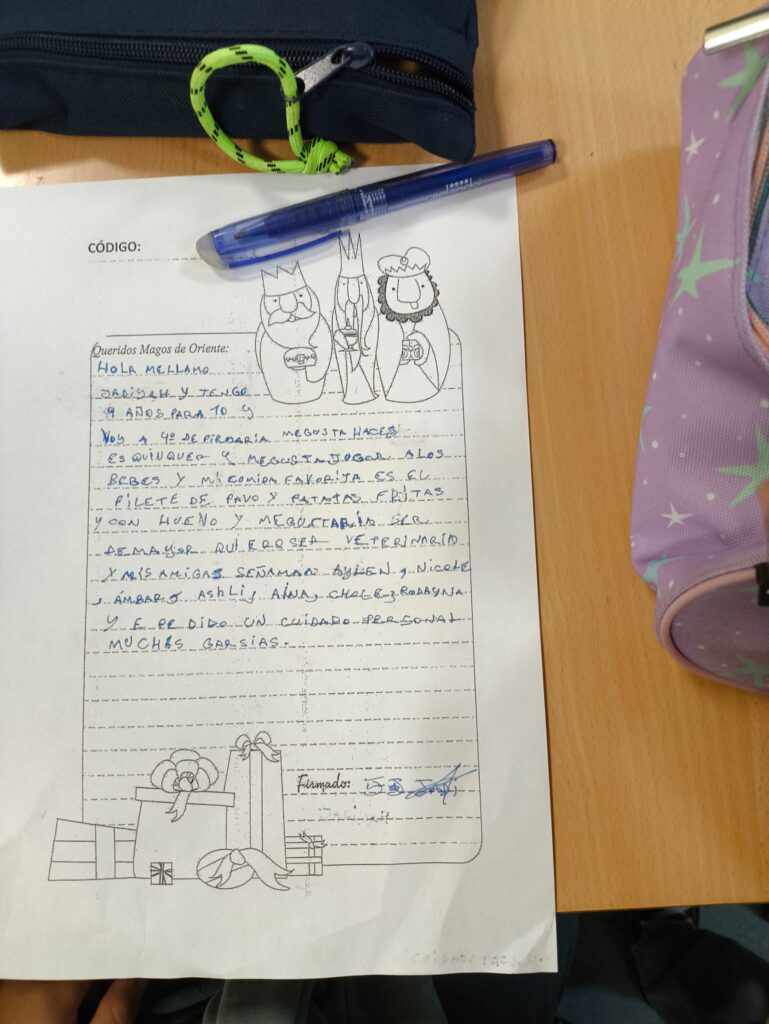 CÓDIGO:
Queridos Magos de Oriente:
HOLA MELLAMO
JADIYAH Y TENGO
9 AÑOS PARA 10 Y
VOY A 4º DE PIRMARIA MEGUSTA HACES
ESQUINQUEA Y MEGUSTA JUGAR ALOS
BEBES Y MI COMIDA FAVORITA ES EL
FILETE DE PAVO Y PATATAS FRITAS
Y CON HUEVO Y MEGUSTARIA SER
DEMAYOR QUIERO SER VETERINARIA
Y MIS AMIGAS SEÑAMAN AYLEN, NICOLE
, ÁMBAR, ASHLI, AINA, CHOLE, RODAYNA
Y E PEDIDO UN CUIDADO PERSONAL
MUCHAS GARSIAS.
Firmado: